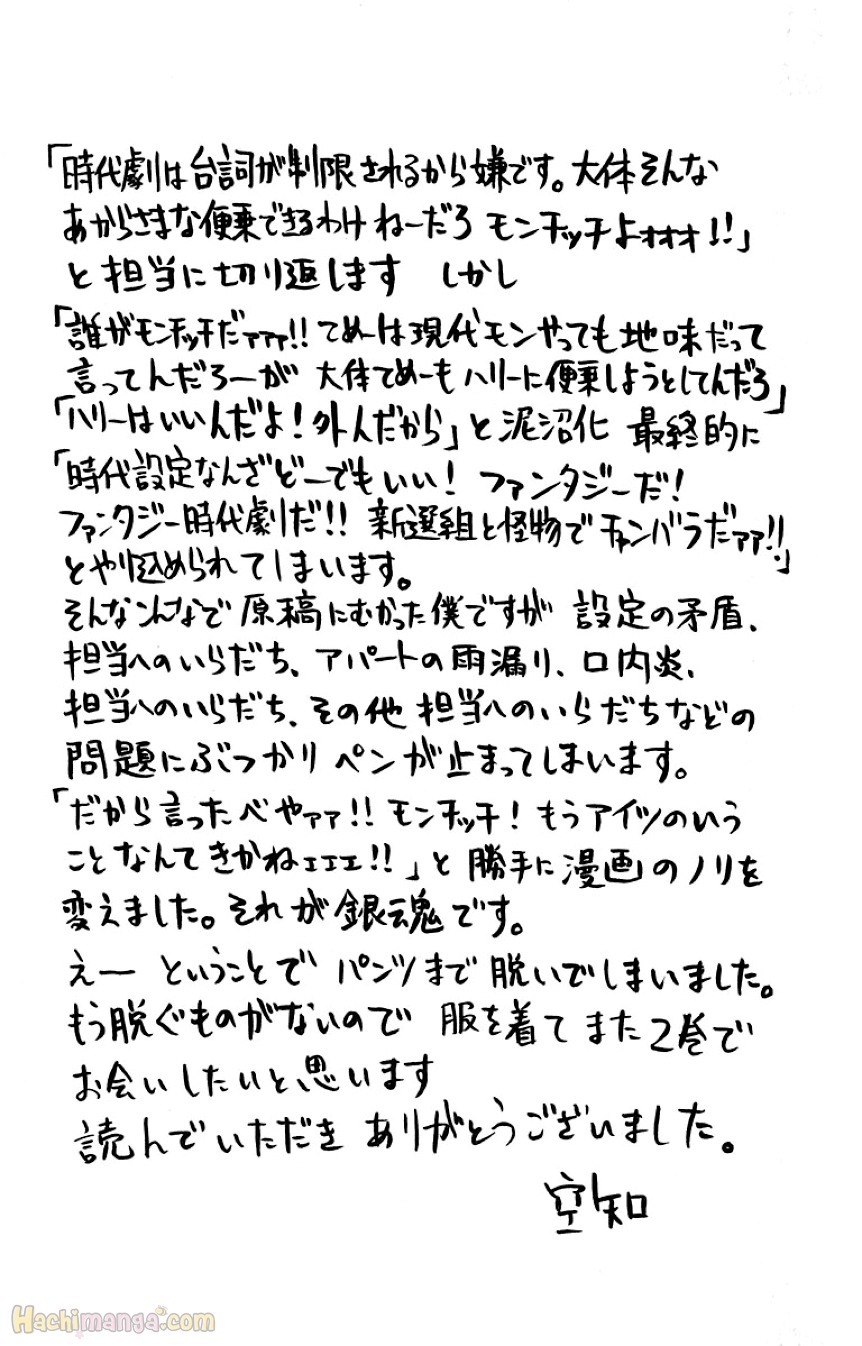 「時代劇は台詞が制限されるから嫌です。大体そんな
あからさまな便乗できるわけねーだろ モンチッチよォォォ!!」
と担当に切り返します しかし
「誰がモンチッチだァァァ!! てめーは現代モンやっても地味だって
言ってんだろーが 大体てめーもハリーに便乗しようとしてんだろ」
「ハリーはいいんだよ!外人だから」と泥沼化 最終的に
「時代設定なんざどーでもいい! ファンタジーだ!
ファンタジー時代劇だ!! 新選組と怪物でチャンバラだァァ!!」
とやり込められてしまいます。
そんなこんなで原稿にむかった僕ですが 設定の矛盾、
担当へのいらだち、アパートの雨漏り、口内炎、
担当へのいらだち、その他 担当へのいらだちなどの
問題にぶつかり ペンが止まってしまいます。
「だから言ったべやァァ!! モンチッチ! もうアイツのいう
ことなんてきかねェェェ!!」と 勝手に漫画のノリを
変えました。それが銀魂です。
えー ということで パンツまで脱いでしまいました。
もう脱ぐものがないので 服を着てまた2巻で
お会いしたいと思います
読んでいただき ありがとうございました。
空知
Hachimanga.com